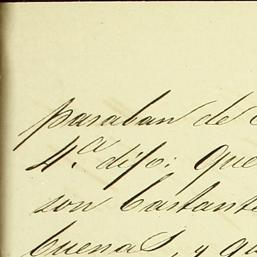 pasaban de
4.ª dijo: que
son bastante
buenas, y qu